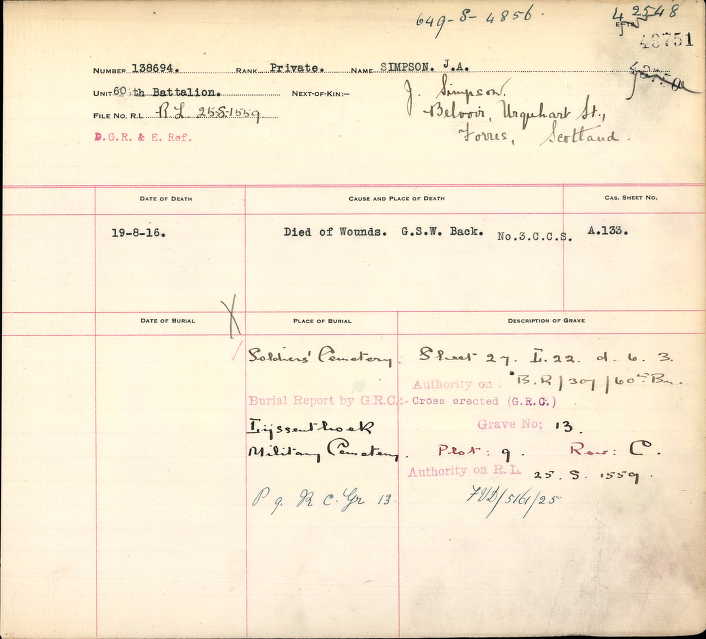 649-S-4856.
4 2548
42751
NUMBER 138694. RANK Private. NAME SIMPSON. J.A.
UNIT 60th Battalion. NEXT-OF-KIN:— J. Simpson.
FILE NO. R.L. RL 25.S.1559 Belvoir, Urquhart St.,
D.G.R. & E. Ref. Forres, Scotland.
DATE OF DEATH CAUSE AND PLACE OF DEATH CAS. SHEET NO.
19-8-16. Died of Wounds. G.S.W. Back. No.3.C.C.S. A.133.
DATE OF BURIAL PLACE OF BURIAL DESCRIPTION OF GRAVE
Soldiers' Cemetery. Sheet 27. L.22. d. 6. 3.
Authority on. B.R/307/60th Bn.
Burial Report by G.R.C:- Cross erected (G.R.C.)
Lijssenthoek Grave No; 13.
Military Cemetery. Plot: 9. Row: C.
Authority on R.L. 25. S. 1559.
P 9. R C. Gr 13